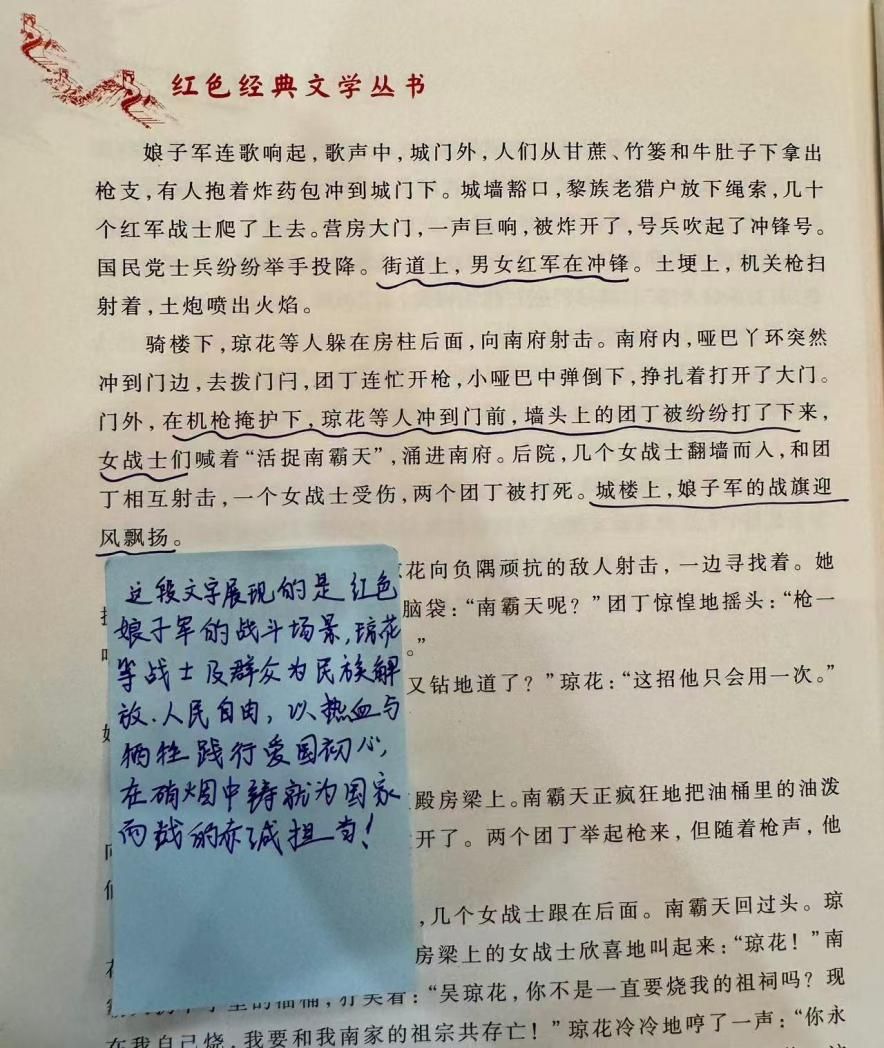 红色经典文学丛书
娘子军连歌响起，歌声中，城门外，人们从甘蔗、竹篓和牛肚子下拿出
枪支，有人抱着炸药包冲到城门下。城墙豁口，黎族老猎户放下绳索，几十
个红军战士爬了上去。营房大门，一声巨响，被炸开了，号兵吹起了冲锋号。
国民党士兵纷纷举手投降。街道上，男女红军在冲锋。土埂上，机关枪扫
射着，土炮喷出火焰。
骑楼下，琼花等人躲在房柱后面，向南府射击。南府内，哑巴丫环突然
冲到门边，去拨门闩，团丁连忙开枪，小哑巴中弹倒下，挣扎着打开了大门。
门外，在机枪掩护下，琼花等人冲到门前，墙头上的团丁被纷纷打了下来，
女战士们喊着“活捉南霸天”，涌进南府。后院，几个女战士翻墙而入，和团
丁相互射击，一个女战士受伤，两个团丁被打死。城楼上，娘子军的战旗迎
风飘扬。
花向负隅顽抗的敌人射击，一边寻找着。她
脑袋：“南霸天呢？”团丁惊惶地摇头：“枪一
。”
又钻地道了？”琼花：“这招他只会用一次。”
殿房梁上。南霸天正疯狂地把油桶里的油泼
开了。两个团丁举起枪来，但随着枪声，他
，几个女战士跟在后面。南霸天回过头。琼
房梁上的女战士欣喜地叫起来：“琼花！”南
狞笑着：“吴琼花，你不是一直要烧我的祖祠吗？现
在我自己烧，我要和我南家的祖宗共存亡！”琼花冷冷地哼了一声：“你永
这段文字展现的是红色
娘子军的战斗场景，琼花
等战士及群众为民族解
放、人民自由，以热血与
牺牲践行爱国初心，
在硝烟中铸就为国家
而战的赤诚担当！